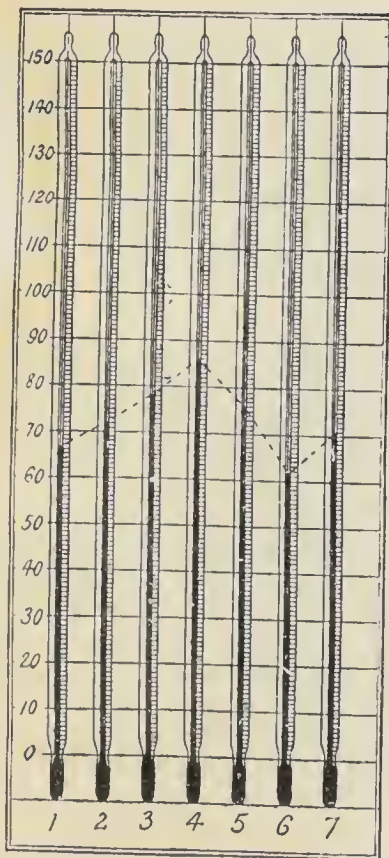 150
140
130
120
110
100
90
80
70
60
50
40
30
20
10
0
1 2 3 4 5 6 7